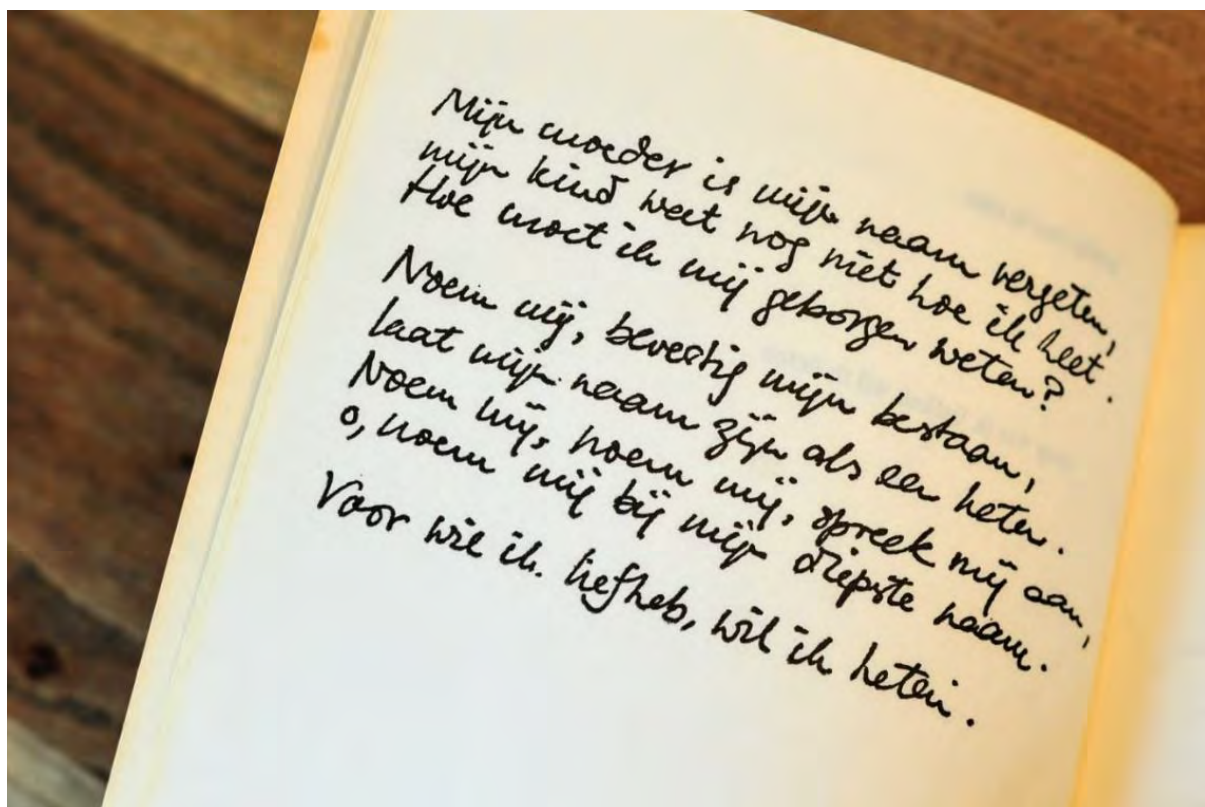 Mijn moeder is mijn naam vergeten,
mijn kind weet nog niet hoe ik heet.
Hoe moet ik mij geborgen weten?
Noem mij, bevestig mijn bestaan,
laat mijn naam zijn als een keten.
Noem mij, noem mij, spreek mij aan,
o, noem mij bij mijn diepste naam.
Voor wie ik liefheb, wil ik heten.